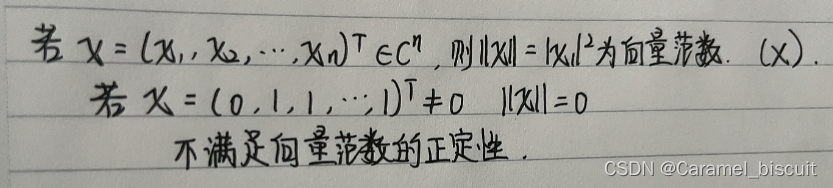 若 X = (X₁, X₂, ⋯, Xn)ᵀ ∈ Cⁿ, 则 ||X|| = |X₁|² 为向量范数. (×).
若 X = (0, 1, 1, ⋯, 1)ᵀ ≠ 0 ||X|| = 0
不满足向量范数的正定性.
CSDN @Caramel_biscuit